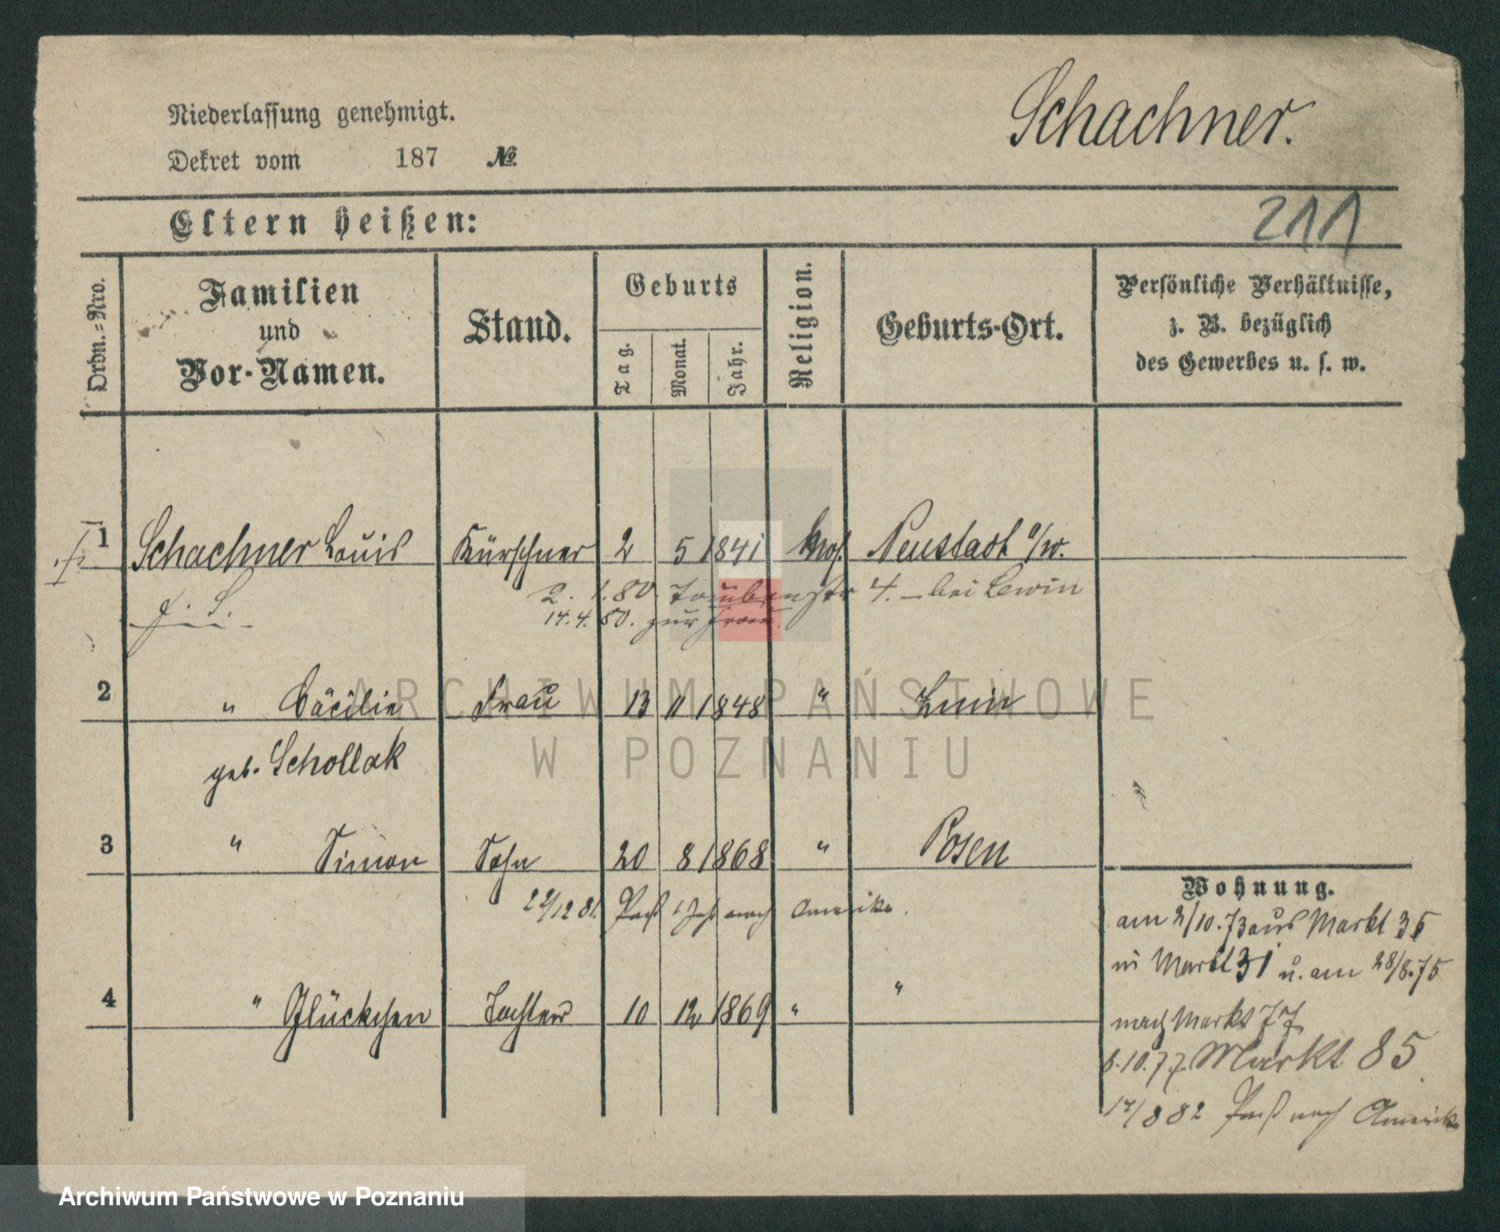 Schachner.
Niederlassung genehmigt.
Dekret vom 187 №
211
Eltern heißen:
Ordn.-Nro.
Familien und Vor-Namen.
Stand.
Geburts
Tag. Monat. Jahr.
Religion.
Geburts-Ort.
Persönliche Verhältnisse,
z. B. bezüglich
des Gewerbes u. s. w.
1 Schachner Louis Kürschner 2 5 1841 mos. Neustadt a/W.
2. 1.80 Taubenstr 4. – bei Lewin
14.4.80. zur Frau.
2 " Cäcilie Frau 13 11 1848 "
geb. Schollak
3 " Simon Sohn 20 8 1868 " Posen
/12 81. Paß 1 Jahr nach Amerika.
4 " Glückchen Tochter 10 12 1869 " "
Wohnung.
am 2/10.73 aus Markt 35
in Markt 31 u. am 28/8.75
nach Markt 77
8.10.77 Markt 85
17/8 82 Paß nach Amerika
ARCHIWUM PAŃSTWOWE
W POZNANIU
Archiwum Państwowe w Poznaniu